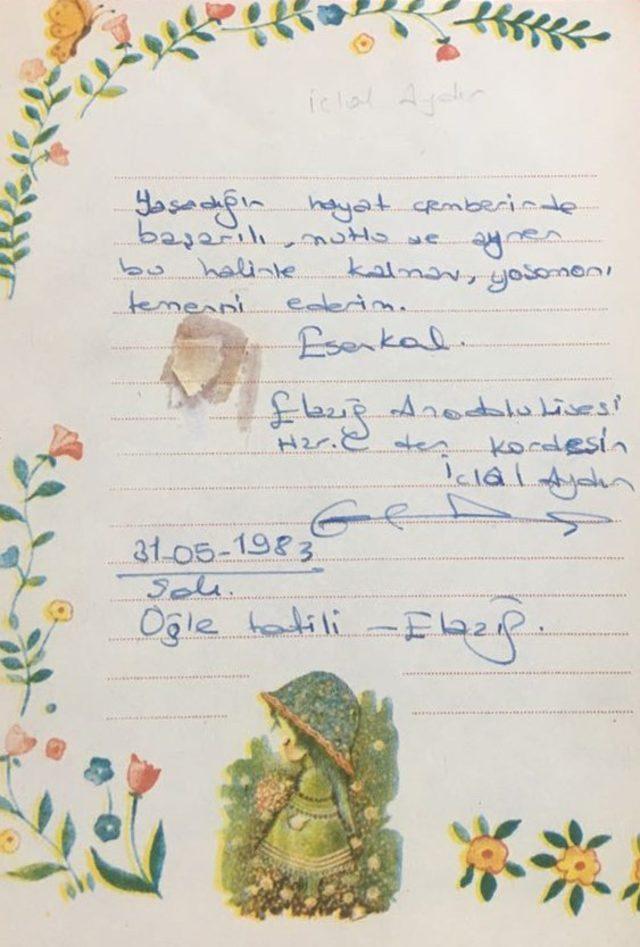 İclal Aydın
Yaşadığın hayat çemberinde
başarılı, mutlu ve aynen
bu halinle kalmanı, yaşamanı
temenni ederim.
Esenkal.
Elazığ Anadolu Lisesi
Hzr. C den kardeşin
İclâl Aydın
31.05-1983
Salı.
Öğle tatili - Elazığ.